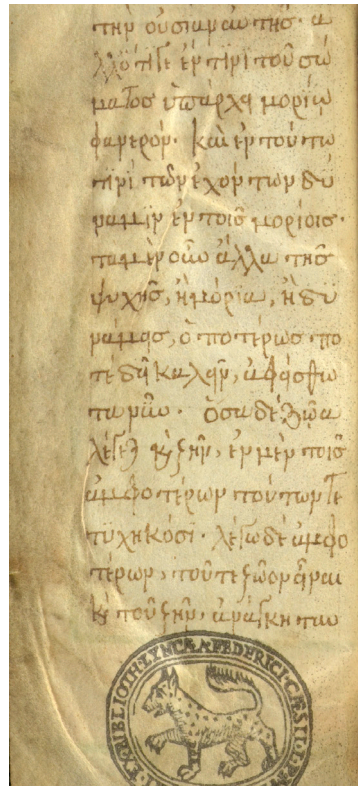 τὴν οὐσίαν αὐτῆς· ἀ
λλ' ὅτι γε ἔν τινι τοῦ σώ
ματος ὑπάρχει μορίω
φανερόν· καὶ ἐν τούτω
τινὶ τῶν ἐχόντων δύ
ναμιν ἐν τοῖς μορίοις·
τὰ μὲν οὖν ἄλλα τῆς
ψυχῆς, ἢ μόρια, ἢ δυ
νάμεις, ὁποτέρως πο
τὲ δεῖ καλεῖν, ἀφείσθω
τανῦν· ὅσα δὲ ζῶα
λέγεται καὶ ζῆν, ἐν μὲν τοῖς
ἀμφοτέρων τούτων τε
τυχηκόσι· λέγω δὲ ἀμφο
τέρων, τοῦ τε ζῶον εἶναι
καὶ τοῦ ζῆν, ἀνάγκη ταυ
EX·BIBLIOTH·LYNCÆÆ·FEDERICI·CÆSII·L·P·M